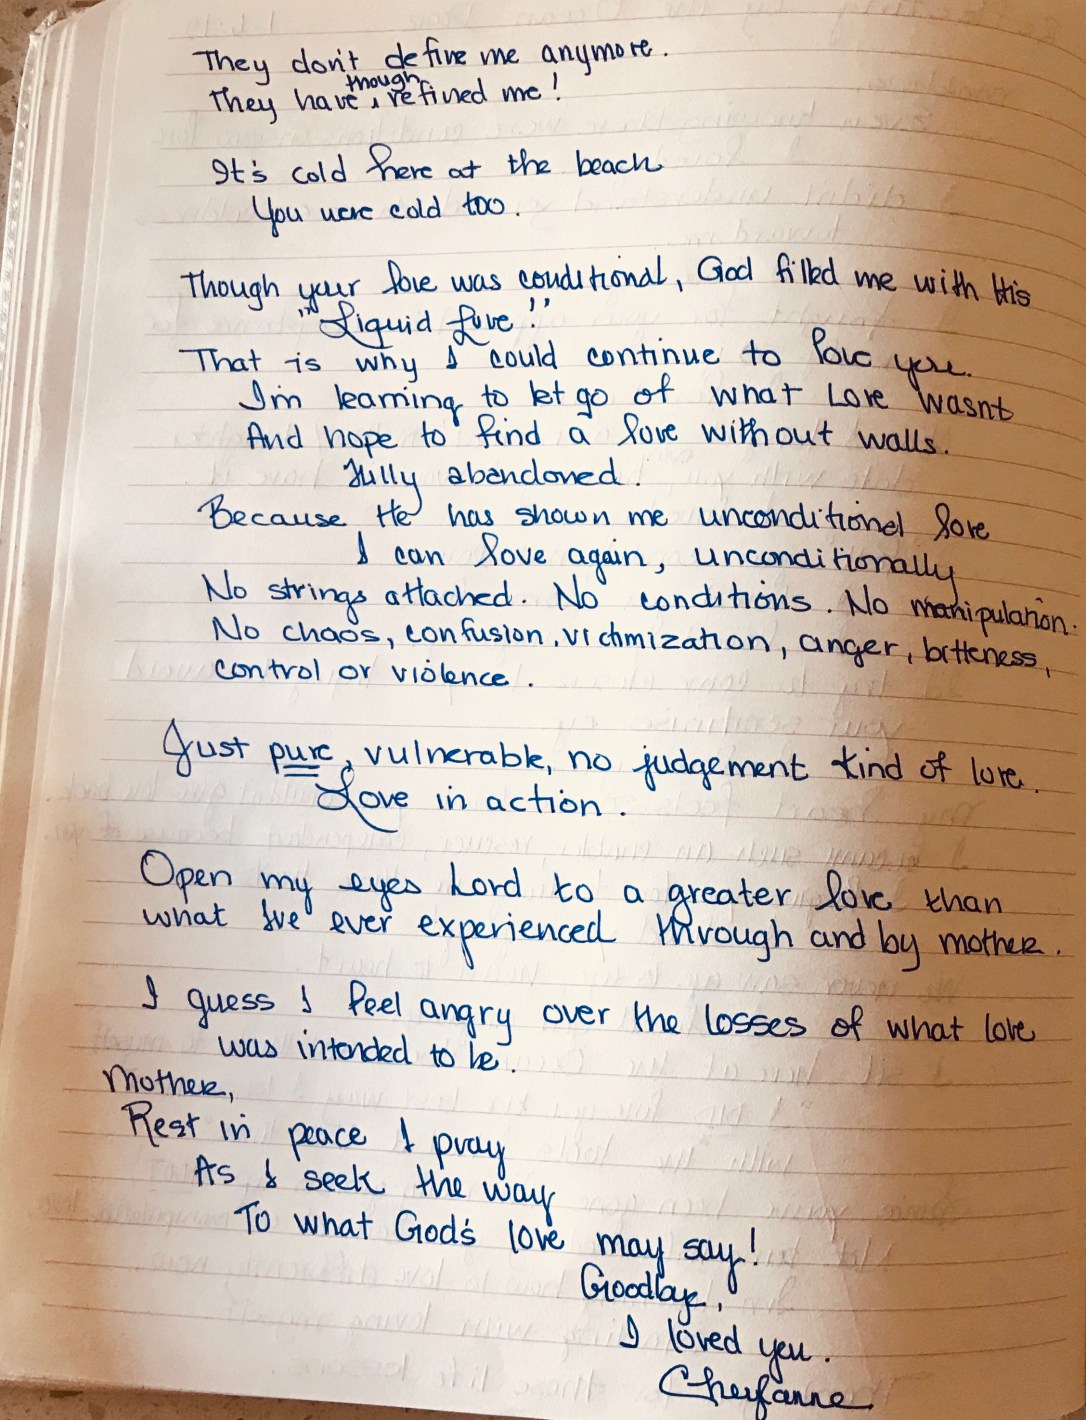 They don't define me anymore.
They have though refined me!
It's cold here at the beach
You were cold too.
Though your love was conditional, God filled me with His
"Liquid Love!"
That is why I could continue to love you.
I'm learning to let go of what Love wasn't
And hope to find a love without walls.
Fully abandoned.
Because He has shown me unconditional love
I can love again, unconditionally
No strings attached. No conditions. No manipulation.
No chaos, confusion, victimization, anger, bitteness,
control or violence.
Just pure, vulnerable, no judgement kind of love.
Love in action.
Open my eyes Lord to a greater love than
what I've ever experienced through and by mother.
I guess I feel angry over the losses of what love
was intended to be.
Mother,
Rest in peace I pray
As I seek the way
To what God's love may say!
Goodbye,
I loved you.
Cheyanne